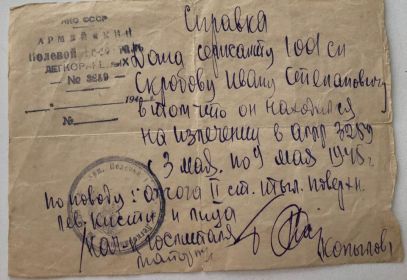 НКО СССР
АРМЕЙСКИЙ
Полевой
ЛЕГКОРАНЕНЫХ
№ 3259
194
№
Справка
Дана сержанту 1001 сп
Скробову Ивану Степановичу
в том что он находился
на излечении в 3259
с 3 мая по 9 мая 1945 г
по поводу: ожога II ст. тыл. поверхн.
лев. кисти и лица
Нач-к госпиталя
майор
Копылов